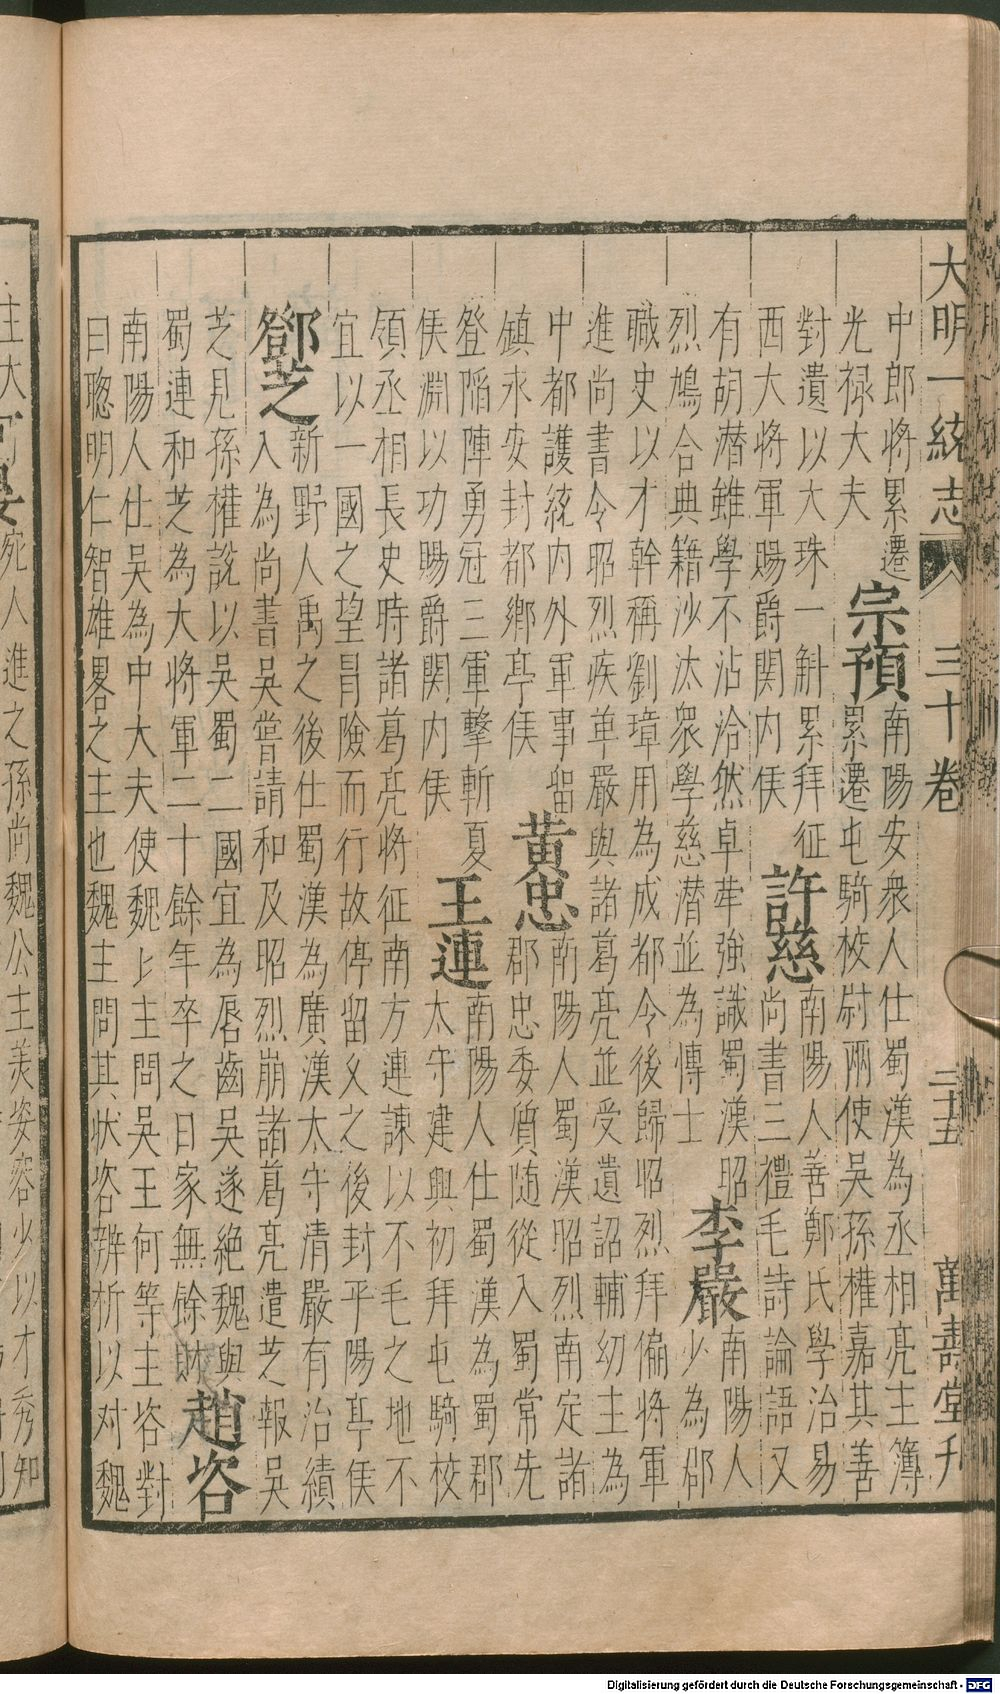 大明一統志 三十卷 二十五 萬壽堂刋
中郎将累遷
光禄大夫
宗預
南陽安衆人仕蜀漢為丞相亮主簿
累遷屯騎校尉兩使吳孫權嘉其善
對遺以大珠一斛累拜征
西大将軍賜爵関内侯
許慈
南陽人善鄭氏學治易
尚書三禮毛詩論語又
有胡潜雖學不沾洽然卓犖強識蜀漢昭
烈鳩合典籍沙汰衆學慈潜並為博士
李嚴
南陽人
少為郡
職史以才幹稱劉璋用為成都令後歸昭烈拜偏将軍
進尚書令昭烈疾革嚴與諸葛亮並受遺詔輔幼主為
中都護統内外軍事留
鎮永安封都鄉亭侯
黃忠
南陽人蜀漢昭烈南定諸
郡忠委質随從入蜀常先
登陷陣勇冠三軍擊斬夏
侯淵以功賜爵関内侯
王連
南陽人仕蜀漢為蜀郡
太守建興初拜屯騎校
領丞相長史時諸葛亮将征南方連諫以不毛之地不
宜以一國之望冐險而行故停留乆之後封平陽亭侯
鄧芝
新野人禹之後仕蜀漢為廣漢太守清嚴有治績
入為尚書吳嘗請和及昭烈崩諸葛亮遣芝報吳
芝見孫權說以吳蜀二國宜為唇齒吳遂絶魏與
蜀連和芝為大将軍二十餘年卒之日家無餘財
趙咨
南陽人仕吳為中大夫使魏〻主問吳王何等主咨對
曰聰明仁智雄畧之主也魏主問其状咨辨析以对魏
主大
宛人進之孫尚魏公主美姿容少以才秀知
Digitalisierung gefördert durch die Deutsche Forschungsgemeinschaft - DFG